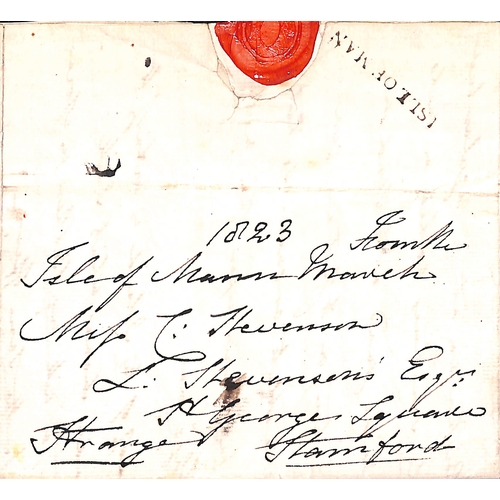 ISLE OF MAN
1823 From the
Isle of Mann March
Miss C: Stevenson
L: Stevenson's Esqr
St George's Square
Strange Stamford